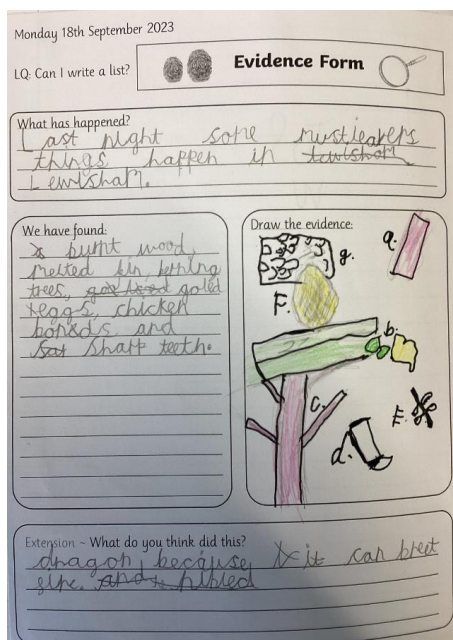 Monday 18th September 2023
LQ: Can I write a list?
Evidence Form
What has happened?
Last night some mustiearers
things happen in
Lewisham.
We have found:
burnt wood,
melted tin, berning
trees, goled
eggs, chicken
boneds and
sharp teeth.
Draw the evidence:
g.
a.
F.
b.
c.
E.
d.
Extension – What do you think did this?
dragon, because it can breet
fire.